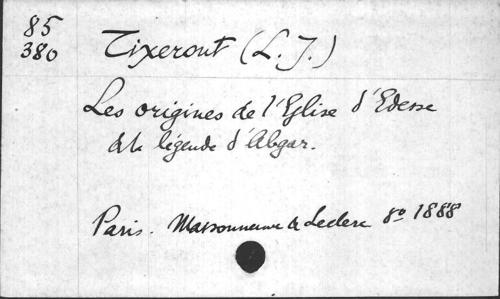 85
380
Tixeront (L. J.)
Les origines de l'Eglise d'Edesse
et la légende d'Abgar.
Paris. Maisonneuve & Leclerc 8º 1888